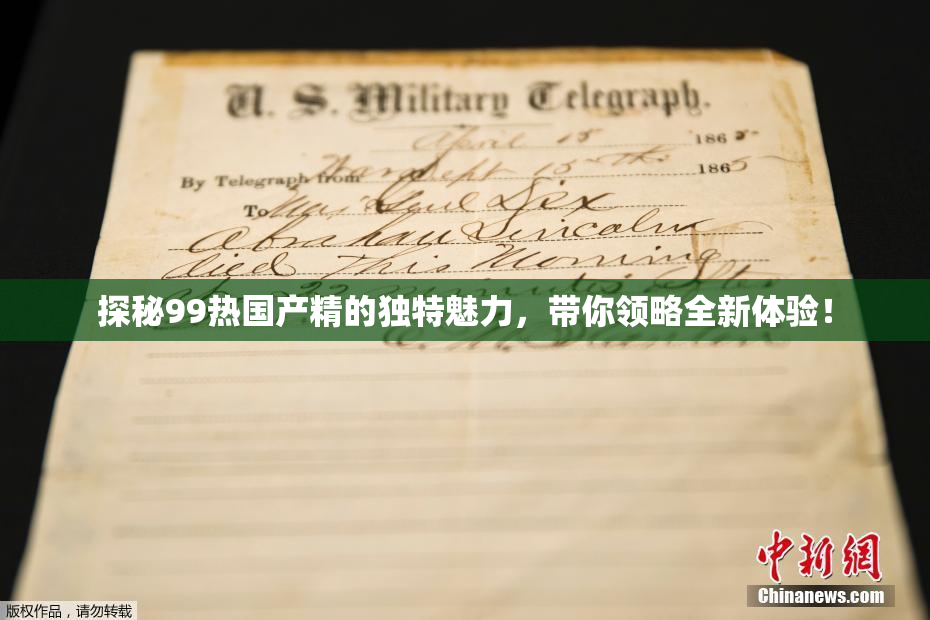 U. S. Military Telegraph.
April 15 1865
By Telegraph from War Dept 15th 1865
To Maj Genl Dix
Abraham Lincoln
died This Morning
22 minutes after
探秘99热国产精的独特魅力，带你领略全新体验！
中新網
Chinanews.com
版权作品，请勿转载